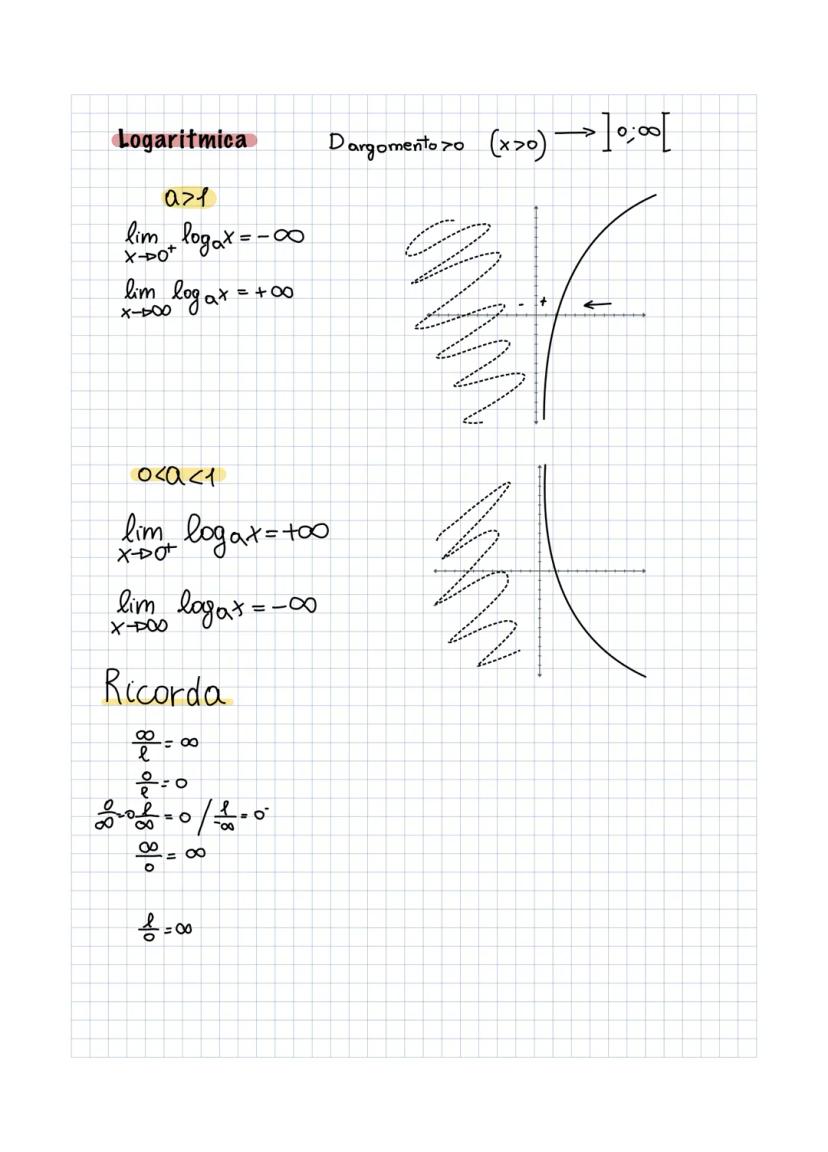 Logaritmica D argomento>0 (x>0) → ]0;∞[
a>1
lim x→0⁺ logₐx = -∞
lim x→∞ logₐx = +∞
- +
0<a<1
lim x→0⁺ logₐx = +∞
lim x→∞ logₐx = -∞
Ricorda
∞/ℓ = ∞
0/ℓ = 0
0/∞ → ℓ/∞ = 0 / ℓ/-∞ = 0⁻
∞/0 = ∞
ℓ/0 = ∞